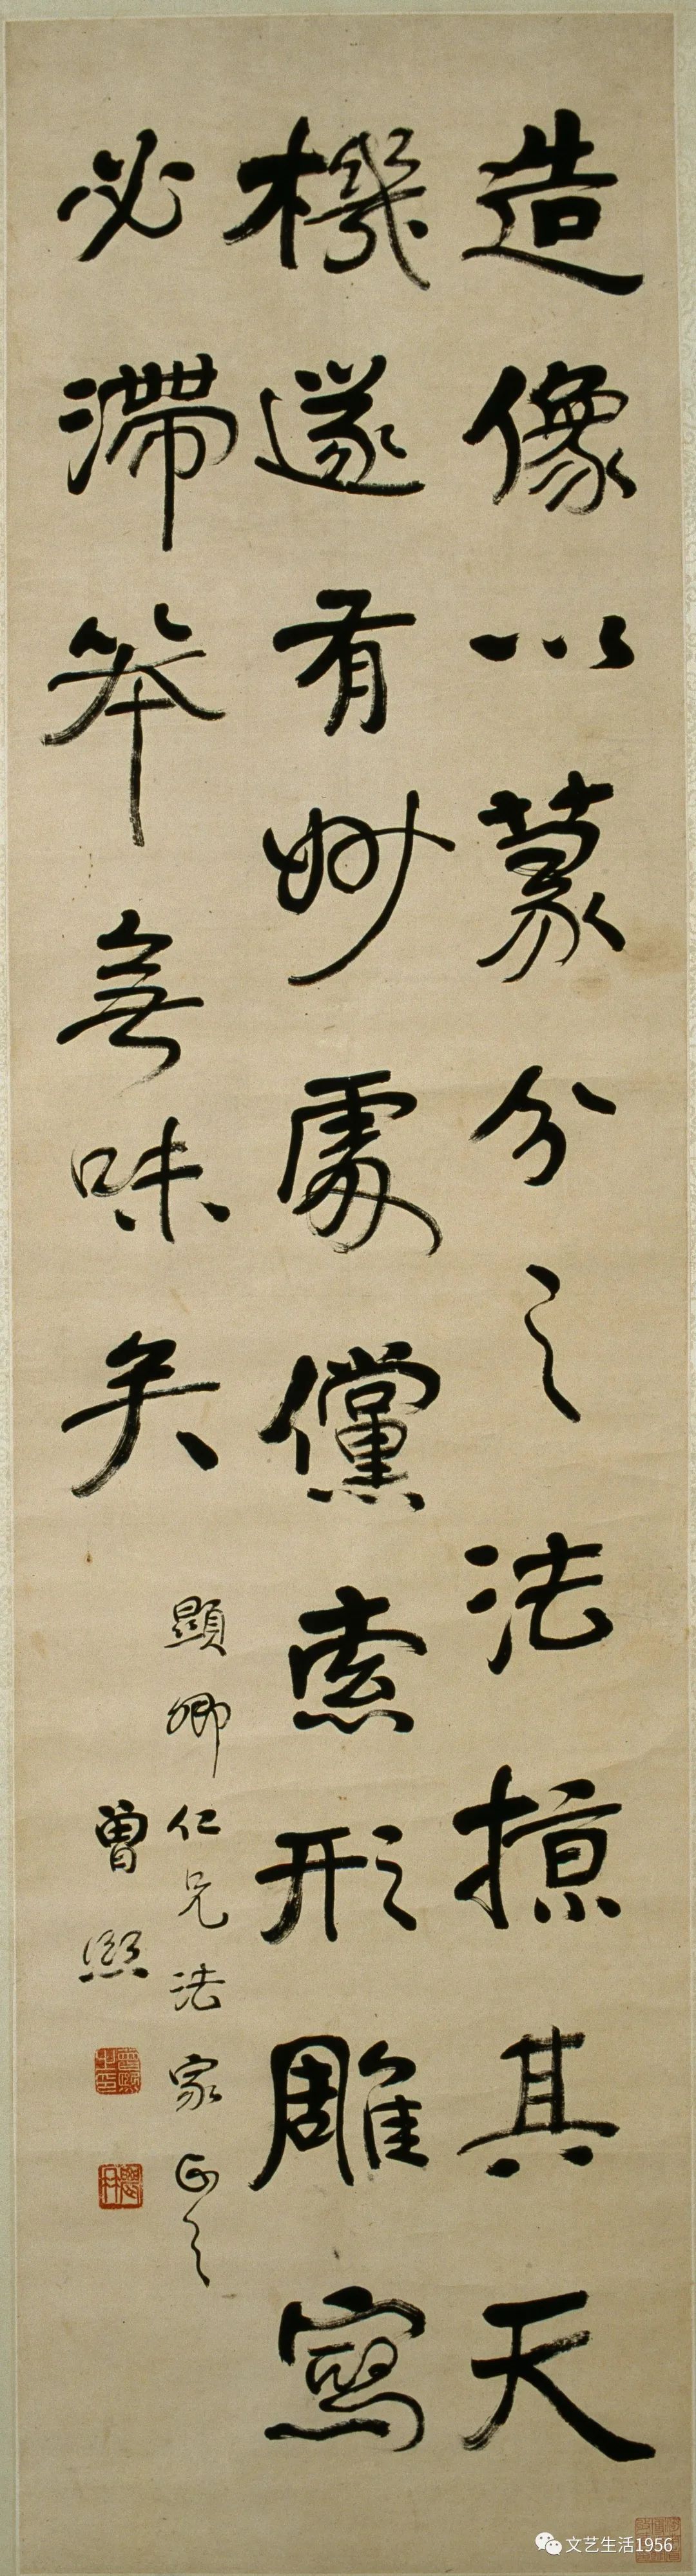 造像以篆分之法掠其天
機遂有妙處儻索形雕寫
必滯笨無味矣
顯卿仁兄法家正之
曾熙
文艺生活1956